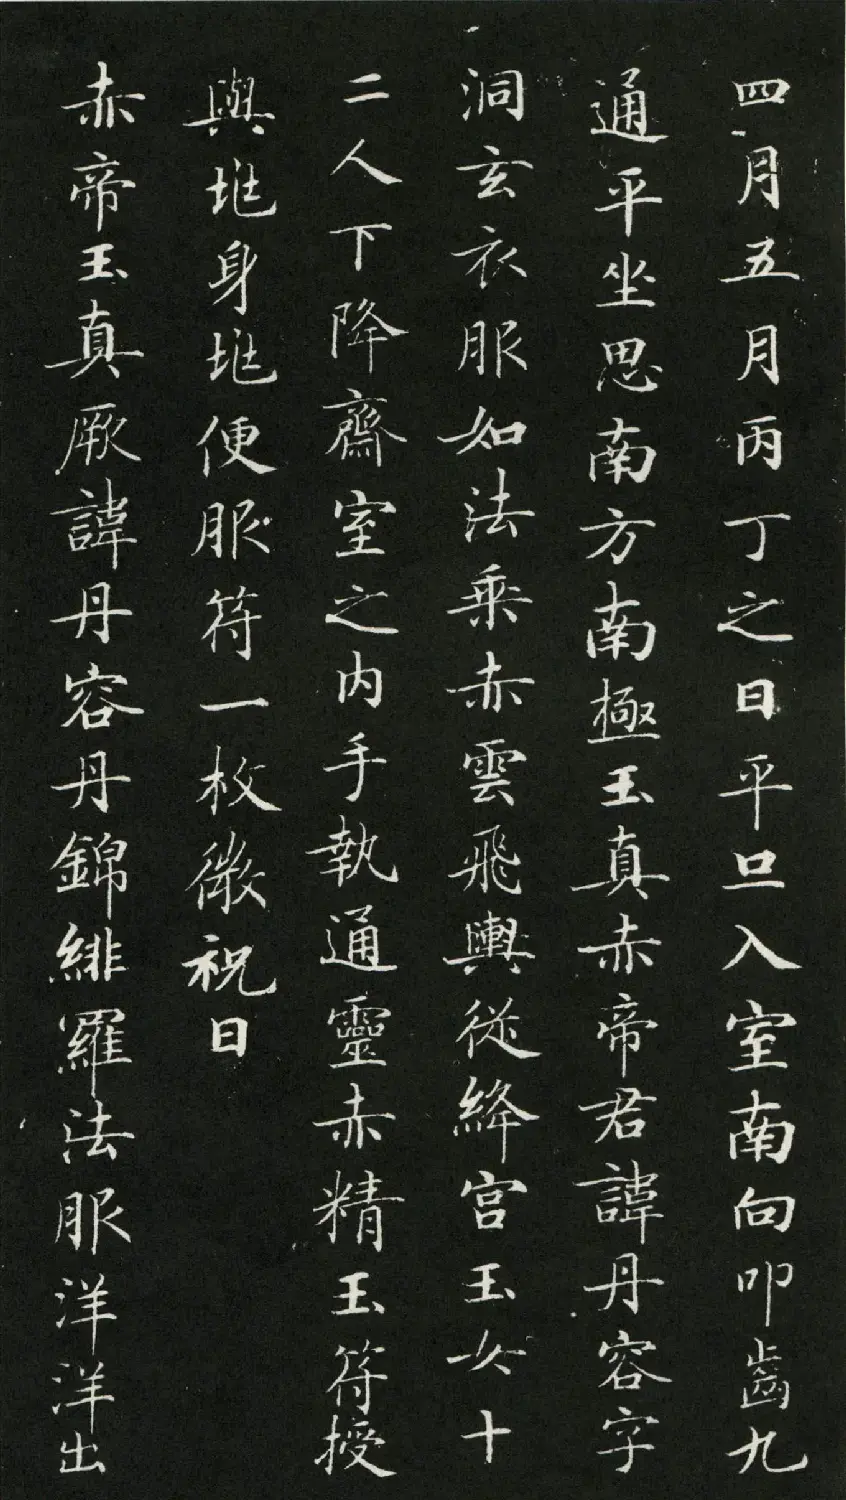 四月五月丙丁之日平旦入室南向叩齒九
通平坐思南方南極玉真赤帝君諱丹容字
洞玄衣服如法乗赤雲飛輿從絳宮玉女十
二人下降齋室之内手執通靈赤精玉符授
與兆身兆便服符一枚微祝曰
赤帝玉真厥諱丹容丹錦緋羅法服洋洋出